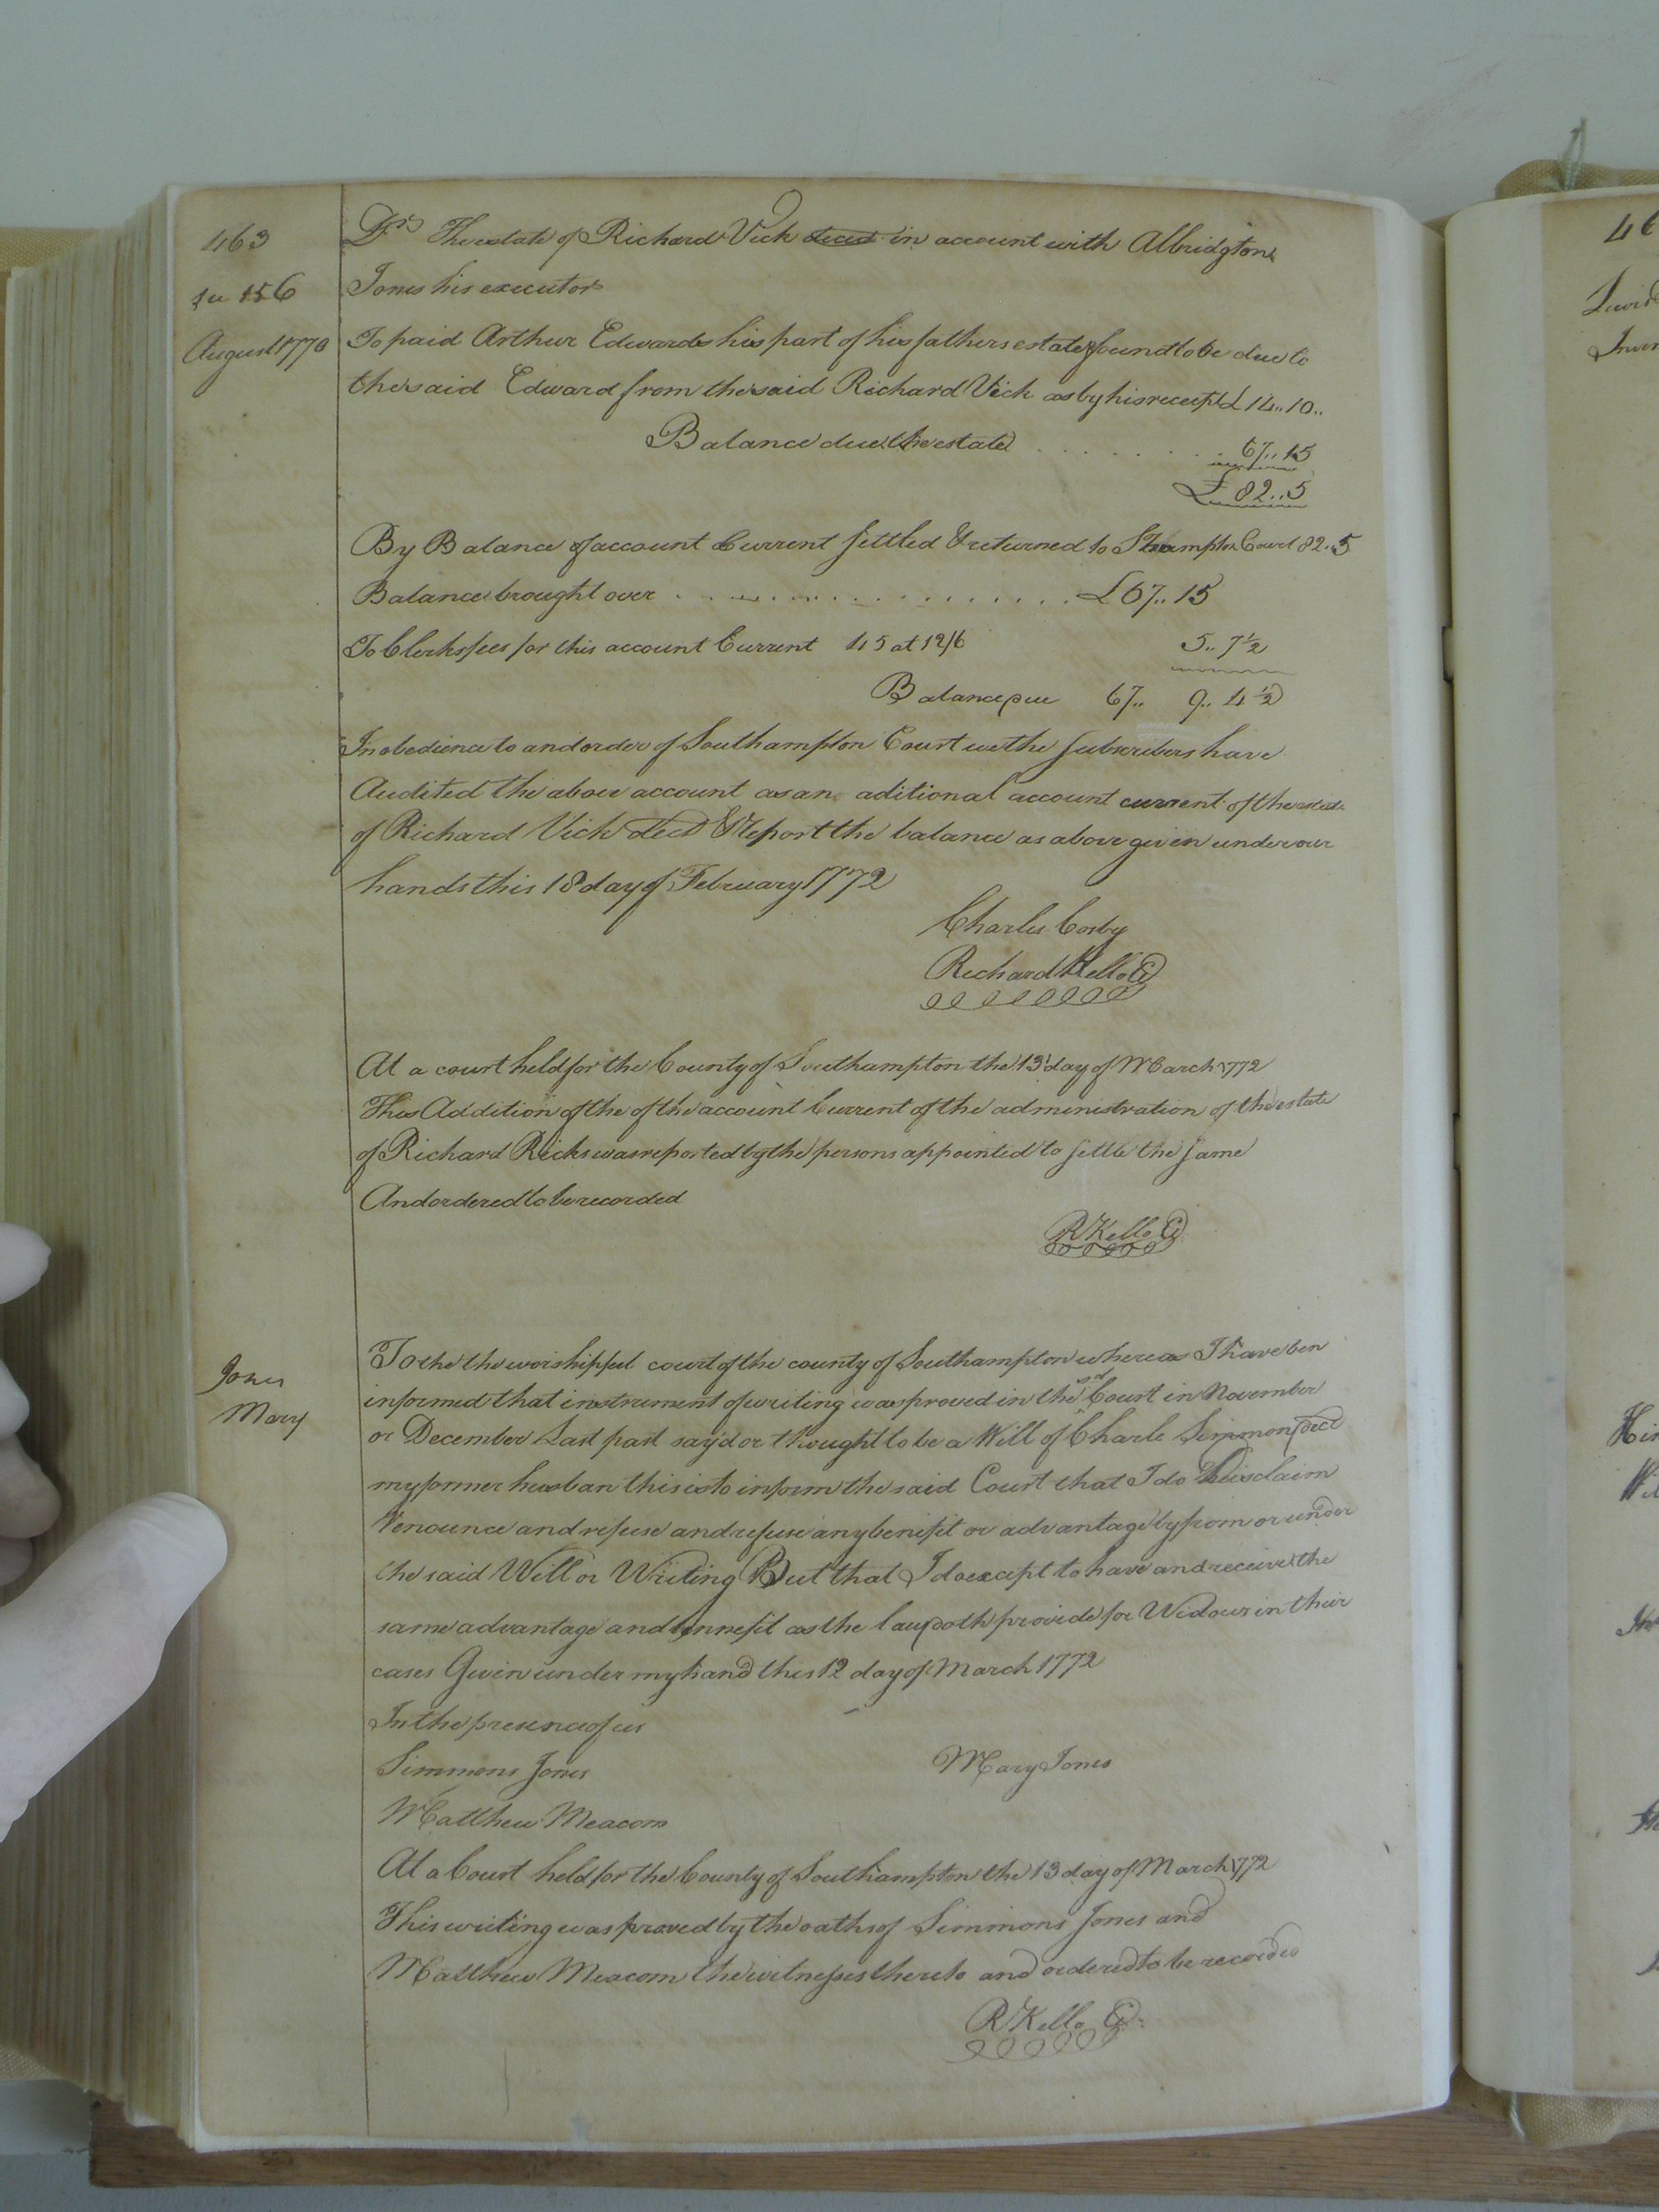 463
Dr The estate of Richard Vick decd in account with Albridgton
see 156
Jones his executor
August 1770
To paid Arthur Edwards his part of his fathers estate found to be due to
the said Edward from the said Richard Vick as by his receipt £ 14..10..
Balance due the estate . . . . . . . 67..15
£ 82..5
By Balance of account Current settled & returned to Sthampton Court 82..5
Balance brought over . . . . . . . . . . £ 67..15
To Clerks fees for this account Current 45 at 12/6 5..7½
Balance due 67.. 9.. 4½
In obedience to and order of Southampton Court we the subscribers have
Audited the above account as an aditional account current of the estate
of Richard Vick decd & Report the balance as above given under our
hands this 18 day of February 1772
Charles Cosby
Richard Kello
At a court held for the County of Southampton the 13 day of March 1772
This Addition of the of the account Current of the administration of the estate
of Richard Ricks was reported by the persons appointed to settle the same
And ordered to be recorded
R Kello Cl
Jones
Mary
To the the worshipful court of the county of Southampton whereas I have ben
informed that instrument of writing was proved in the sd Court in November
or December Last past sayd or thought to be a Will of Charle Simmons decd
my former husban this is to inform the said Court that I do Disclaim
Renounce and refuse and refuse any benifit or advantage by from or under
the said Will or Writing But that I do except to have and receive the
same advantage and bennefit as the law doth provide for Widows in their
cases Given under my hand this 12 day of March 1772
In the presence of us
Simmons Jones
Mary Jones
Matthew Meacom
At a Court held for the County of Southampton the 13 day of March 1772
This writing was proved by the oaths of Simmons Jones and
Matthew Meacom the witnesses thereto and ordered to be recorded
R Kello Cl
46